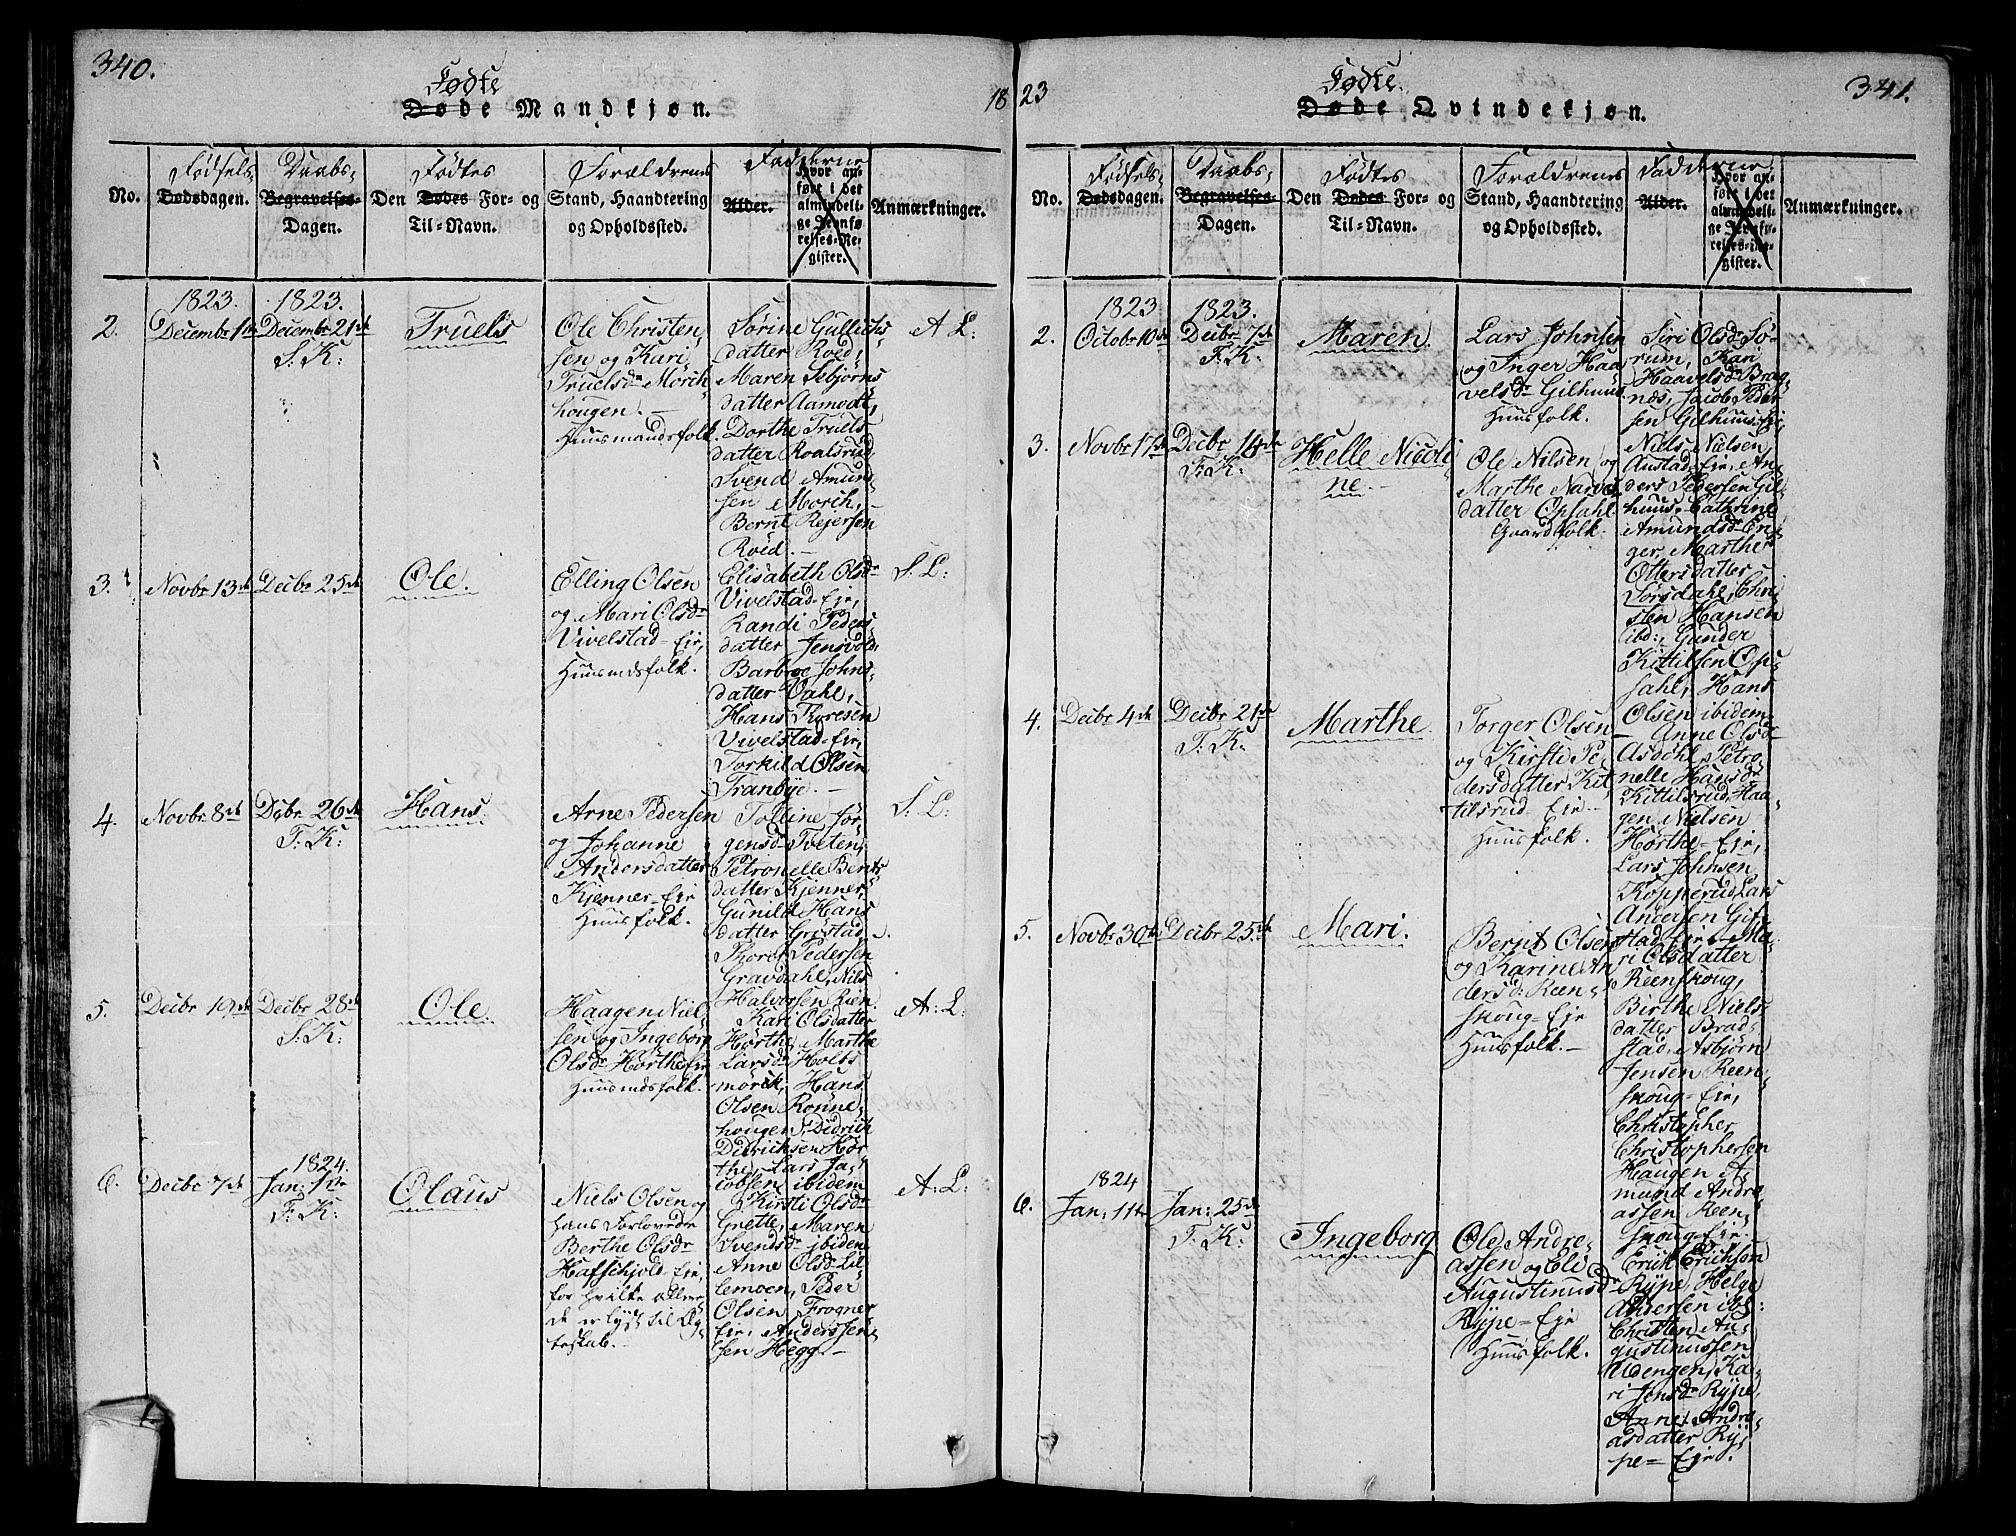 340.
Fødte
Døde Mandkjøn.
18
No.
Fødsels
Dødsdagen.
Daabs-
Begravelses-
Dagen.
Fødtes
Den Dødes For- og
Til-Navn.
Forældrenes
Stand, Haandtering
og Opholdssted.
Fadderne
Alder.
Hvor an-
ført i det
almindeli-
ge Jevnfø-
relses-Re-
gister.
Anmærkninger.
1823. 1823.
2. Decembr 1ste Decembr 21de
S. K:
Truels
Ole Christen,
sen og Kari
Truelsdr Mörch
hougen. —
Huusmandsfolk.
Sørine Gullichs
datter Roed,
Maren Asbjørns
datter Aamodt,
Dorthe Truels
datter Roalsrud,
Svend Amund
sen Mörch,
Bernt Rejersen
Roed. —
A L:
3. Novbr 13de Decbr 25de
Ole.
Elling Olsen
og Mari Olsdr
Vivelstad-Eje,
Huusmdsfolk.
Elisabeth Olsdr
Vivelstad-Eje,
Randi Peders
datter Jensvold,
Barbroe Johns
datter Vahl,
Hans Thoresen
Vivelstad-Eje,
Torkild Olsen
Tranbye. —
S. L:
4. Novbr 8de Decbr 26de
F. K:
Hans.
Arne Pedersen
og Johanne
Andersdatter
Kjenner-Eje
Huusfolk.
Tolline Jør
gensdr Tveten,
Petronelle Bernts
datter Kjenner,
Gunild Hans
datter Gristad.
Thore Pedersen
Gravdahl, Niels
Halvorsen Rien
S. L:
5. Decbr 19de Decbr 28de
S. K:
Ole.
Haagen Niel
sen og Ingeborg
Olsdr Hörthe-Eje
Huusmdsfolk.
Kari Olsdatter
Hörthe, Marthe
Larsdr Holts
mörck, Hans
Olsen Rönne
hougen, Didrich
Didrichsen Hör
the, Lars Ja
cobsen ibidem
A: L:
1824.
6. Decbr 7de Jan: 1ste
F: K:
Olaus
Niels Olsen og
hans Forlovede
Berthe Olsdr
Hafschjold-Eje,
for hvilke aller
de er lyst til Æg
teskab. —
Kirsti Olsdr
Grette, Maren
Svendsdr ibidem
Anne Olsdr Lil
lemoen, Peder
Olsen Frogner
Eje, Anders Jen
sen Hegg —
A: L:
341.
Fødte
Døde Qvindekjøn.
23
No.
Fødsels-
Dødsdagen.
Daabs-
Begravelses-
Dagen.
Fødtes
Den Dødes For- og
Til-Navn.
Forældrenes
Stand, Haandtering
og Opholdssted.
Fadderne
Alder.
Hvor an-
ført i det
almindeli-
ge Jevnfø-
relses-Re-
gister.
Anmærkninger.
1823 1823.
2. Octobr 10de Decbr 7de
F. K:
Maren.
Lars Johnsen
og Inger Haa
velsdr Gilhuus
Huusfolk.
Siri Olsdr Sö
rum, Kari
Haavelsdr Brag
næs, Jacob Peder
sen Gilhuus-Eje
3. Novbr 17de Decbr 14de
F. K:
Helle Nicoli
ne. —
Ole Nilsen og
Marthe Narves
datter Opsahl
Gaardfolk.
Niels Nielsen
Austad-Eje, An
ders Pedersen Gil
huus, Cathrine
Amundsdr En
ger, Marthe
Ottersdatter
Sörsdahl, Chri
sten Hansen
ibd:, Gunder
Kittilsen Op
sahl, Hans
Olsen ibidem
4. Decbr 4de Decbr 21de
F. K:
Marthe.
Torger Olsen
og Kirsti Pe
dersdatter Kit
tilsrud-Eje
Huusfolk.
Anne Olsdr
Asdöhl, Petro
nelle Hansdr
Kittilsrud, Haa
gen Nielsen
Hörthe-Eje,
Lars Johnsen
Kopperud, Lars
Andersen Gif
stad-Eje.
5. Novbr 30te Decbr 25de
Mari.
Bernt Olsen
og Karine An
dersdr Reen
skoug-Eje
Huusfolk. —
Ma
ri Olsdatter
Reenskoug,
Birthe Niels
datter Brad
stad, Asbjörn
Jensen Reen
skoug-Eje,
Christopher
Christophersen
Haugen, A
mund Andre
assen Reen
skoug-Eje.
1824
6. Jan: 11te Jan: 25de
F. K:
Ingeborg
Ole Andre
assen og Eli
Augustinusdr
Rype-Eje
Huusfolk.
Erich Erichsen
Rype, Helge
Andersen ibd:
Christen Au
gustinussen
Udengen, Ka
ri Jonsdr Rype,
Anne Andre
asdatter Ry
pe-Eje.